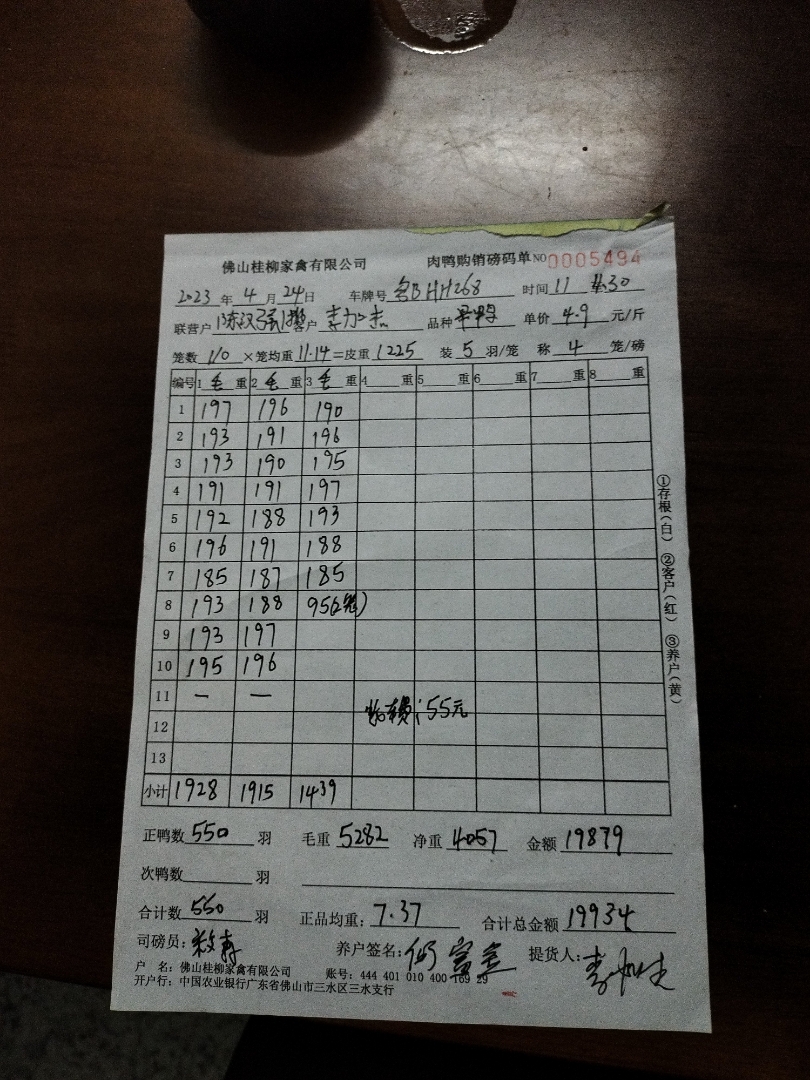 佛山桂柳家禽有限公司 肉鸭购销磅码单 NO 0005494
2023 年 4 月 24 日 车牌号 BHH268 时间 11 30
联营户 陈汉强 客户 李加 品种 单价 4.9 元/斤
笼数 110 ×笼均重 11.14 =皮重 1225 装 5 羽/笼 称 4 笼/磅
编号 1 毛 重 2 毛 重 3 毛 重 4 重 5 重 6 重 7 重 8 重
1 197 196 190
2 193 191 196
3 193 190 195
4 191 191 197
5 192 188 193
6 196 191 188
7 185 187 185
8 193 188 95(2笼)
9 193 197
10 195 196
11 — —
12 费:55元
13
小计 1928 1915 1439
正鸭数 550 羽 毛重 5282 净重 4057 金额 19879
次鸭数 羽
合计数 550 羽 正品均重: 7.37 合计总金额 19934
司磅员: 养户签名: 提货人:
户 名: 佛山桂柳家禽有限公司 账号: 444 401 010 400 169 29
开户行: 中国农业银行广东省佛山市三水区三水支行
①存根(白) ②客户(红) ③养户(黄)